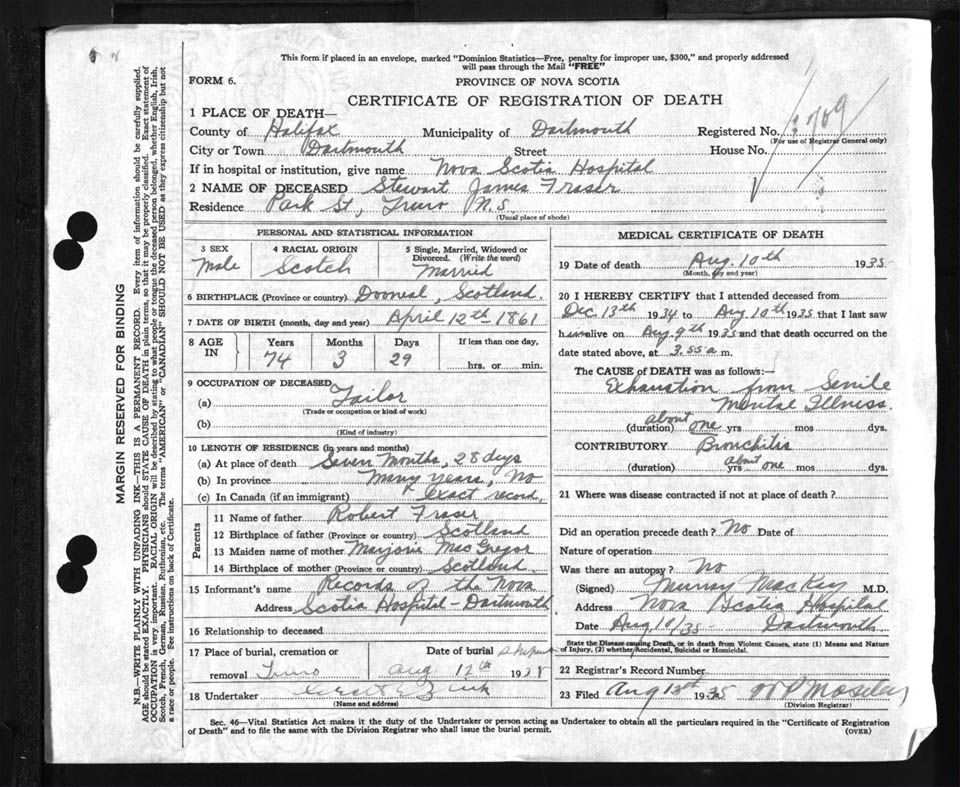 This form if placed in an envelope, marked "Dominion Statistics—Free, penalty for improper use, $300," and properly addressed
will pass through the Mail "FREE"
FORM 6.
PROVINCE OF NOVA SCOTIA
CERTIFICATE OF REGISTRATION OF DEATH
1 PLACE OF DEATH—
County of Halifax Municipality of Dartmouth Registered No.
(For use of Registrar General only)
City or Town Dartmouth Street House No.
If in hospital or institution, give name Nova Scotia Hospital
2 NAME OF DECEASED Stewart James Fraser
Residence Park St, Truro N.S.
(Usual place of abode)
MARGIN RESERVED FOR BINDING
N.B.—WRITE PLAINLY WITH UNFADING INK—THIS IS A PERMANENT RECORD. Every item of information should be carefully supplied.
AGE should be stated EXACTLY. PHYSICIANS should STATE CAUSE OF DEATH in plain terms, so that it may be properly classified. Exact statement of
OCCUPATION is very important. RACIAL ORIGIN will be described by stating to what people or tongue the deceased person belonged, whether English, Irish,
Scotch, French, German, Russian, Ruthenian, etc. The terms "AMERICAN" or "CANADIAN" SHOULD NOT BE USED as they express citizenship but not
a race or people. See instructions on back of Certificate.
PERSONAL AND STATISTICAL INFORMATION
3 SEX
Male
4 RACIAL ORIGIN
Scotch
5 Single, Married, Widowed or
Divorced. (Write the word)
Married
6 BIRTHPLACE (Province or country) Scotland.
7 DATE OF BIRTH (month, day and year) April 12th 1861
8 AGE IN
Years Months Days If less than one day,
74 3 29 hrs. or min.
9 OCCUPATION OF DECEASED
(a) Tailor
(Trade or occupation or kind of work)
(b)
(Kind of industry)
10 LENGTH OF RESIDENCE (in years and months)
(a) At place of death Seven Months, 28 dys
(b) In province Many years, No
(c) In Canada (if an immigrant) exact record,
Parents
11 Name of father Robert Fraser
12 Birthplace of father (Province or country) Scotland
13 Maiden name of mother Marjorie MacGregor
14 Birthplace of mother (Province or country) Scotland.
15 Informant's name Records of the Nova
Address Scotia Hospital - Dartmouth
16 Relationship to deceased
17 Place of burial, cremation or Date of burial
removal Truro Aug 12th 19
18 Undertaker
(Name and address)
MEDICAL CERTIFICATE OF DEATH
19 Date of death Aug. 10th 1935
(Month, day and year)
20 I HEREBY CERTIFY that I attended deceased from
Dec. 13th 1934 to Aug 10th 1935 that I last saw
him alive on Aug 9th 1935 and that death occurred on
date stated above, at 3.55 a m.
The CAUSE of DEATH was as follows:—
Exhaustion from Senile
Mental Illness.
(duration) about one yrs mos dys.
CONTRIBUTORY Bronchitis
(duration) yrs about one mos dys.
21 Where was disease contracted if not at place of death?
Did an operation precede death? No Date of
Nature of operation
Was there an autopsy? No
(Signed) Murray MacKay M.D.
Address Nova Scotia Hospital
Date Aug. 10/35 Dartmouth
State the Disease causing Death, or in death from Violent Causes, state (1) Means and Nature
of Injury, (2) whether Accidental, Suicidal or Homicidal.
22 Registrar's Record Number
23 Filed Aug 13th 1935
(Division Registrar)
Sec. 46—Vital Statistics Act makes it the duty of the Undertaker or person acting as Undertaker to obtain all the particulars required in the "Certificate of Registration
of Death" and to file the same with the Division Registrar who shall issue the burial permit. (OVER)